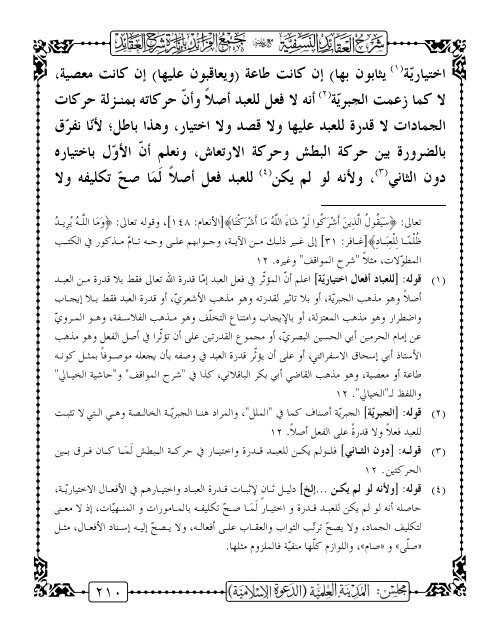 شرح العقائد النسفية مع جمع الفرائد بإنارة شرح العقائد
اختياريّة(١) يثابون بها) إن كانت طاعة (ويعاقبون عليها) إن كانت معصية،
لا كما زعمت الجبريّة(٢) أنه لا فعل للعبد أصلاً وأنّ حركاته بمنزلة حركات
الجمادات لا قدرة للعبد عليها ولا قصد ولا اختيار، وهذا باطل؛ لأنّا نفرّق
بالضرورة بين حركة البطش وحركة الارتعاش، ونعلم أنّ الأوّل باختياره
دون الثاني(٣)، ولأنه لو لم يكن(٤) للعبد فعل أصلاً لَمَا صحّ تكليفه ولا
تعالى: ﴿سَيَقُولُ الَّذِينَ أَشْرَكُوا لَوْ شَاءَ اللَّهُ مَا أَشْرَكْنَا﴾[الأنعام: ١٤٨]، وقوله تعالى: ﴿وَمَا اللَّهُ يُرِيدُ
ظُلْمًا لِلْعِبَادِ﴾[غافر: ٣١] إلى غير ذلك من الآية، وجوابهم على وجه تامّ مذكور في الكتب
المطوّلات، مثلاً "شرح المواقف" وغيره. ١٢
(١) قوله: [للعباد أفعال اختياريّة] اعلم أنّ المؤثّر في فعل العبد إمّا قدرة الله تعالى فقط بلا قدرة من العبد
أصلاً وهو مذهب الجبريّة، أو بلا تاثير لقدرته وهو مذهب الأشعريّ، أو قدرة العبد فقط بلا إيجاب
واضطرار وهو مذهب المعتزلة، أو بالإيجاب وامتناع التخلّف وهو مذهب الفلاسفة، وهو المرويّ
عن إمام الحرمين أبي الحسين البصريّ، أو مجموع القدرتين على أن تؤثّرا في أصل الفعل وهو مذهب
الأستاذ أبي إسحاق الاسفرائني، أو على أن يؤثّر قدرة العبد في وصفه بأن يجعله موصوفاً بمثل كونه
طاعة أو معصية، وهو مذهب القاضي أبي بكر الباقلاني، كذا في "شرح المواقف" و"حاشية الخيالي"
واللفظ لـ"الخيالي". ١٢
(٢) قوله: [الجبريّة] الجبريّة أصناف كما في "الملل"، والمراد هنا الجبريّة الخالصة وهي التي لا تثبت
للعبد فعلاً ولا قدرةً على الفعل أصلاً. ١٢
(٣) قوله: [دون الثاني] فلو لم يكن للعبد قدرة واختيار في حركة البطش لَمَا كان فرق بين
الحركتين. ١٢
(٤) قوله: [ولأنه لو لم يكن ...إلخ] دليل ثانٍ لإثبات قدرة العباد واختيارهم في الأفعال الاختياريّة،
حاصله أنه لو لم يكن للعبد قدرة و اختيار لَمَا صحّ تكليفه بالمامورات و المنهيّات، إذ لا معنى
لتكليف الجماد، ولا يصحّ ترتّب الثواب والعقاب على أفعاله، ولا يصحّ إليه إسناد الأفعال، مثل
«صلّى» و «صام»، واللوازم كلّها منفيّة فالملزوم مثلها.
مجلس: المدينة العلمية (الدعوة الإسلامية)
٢١٠